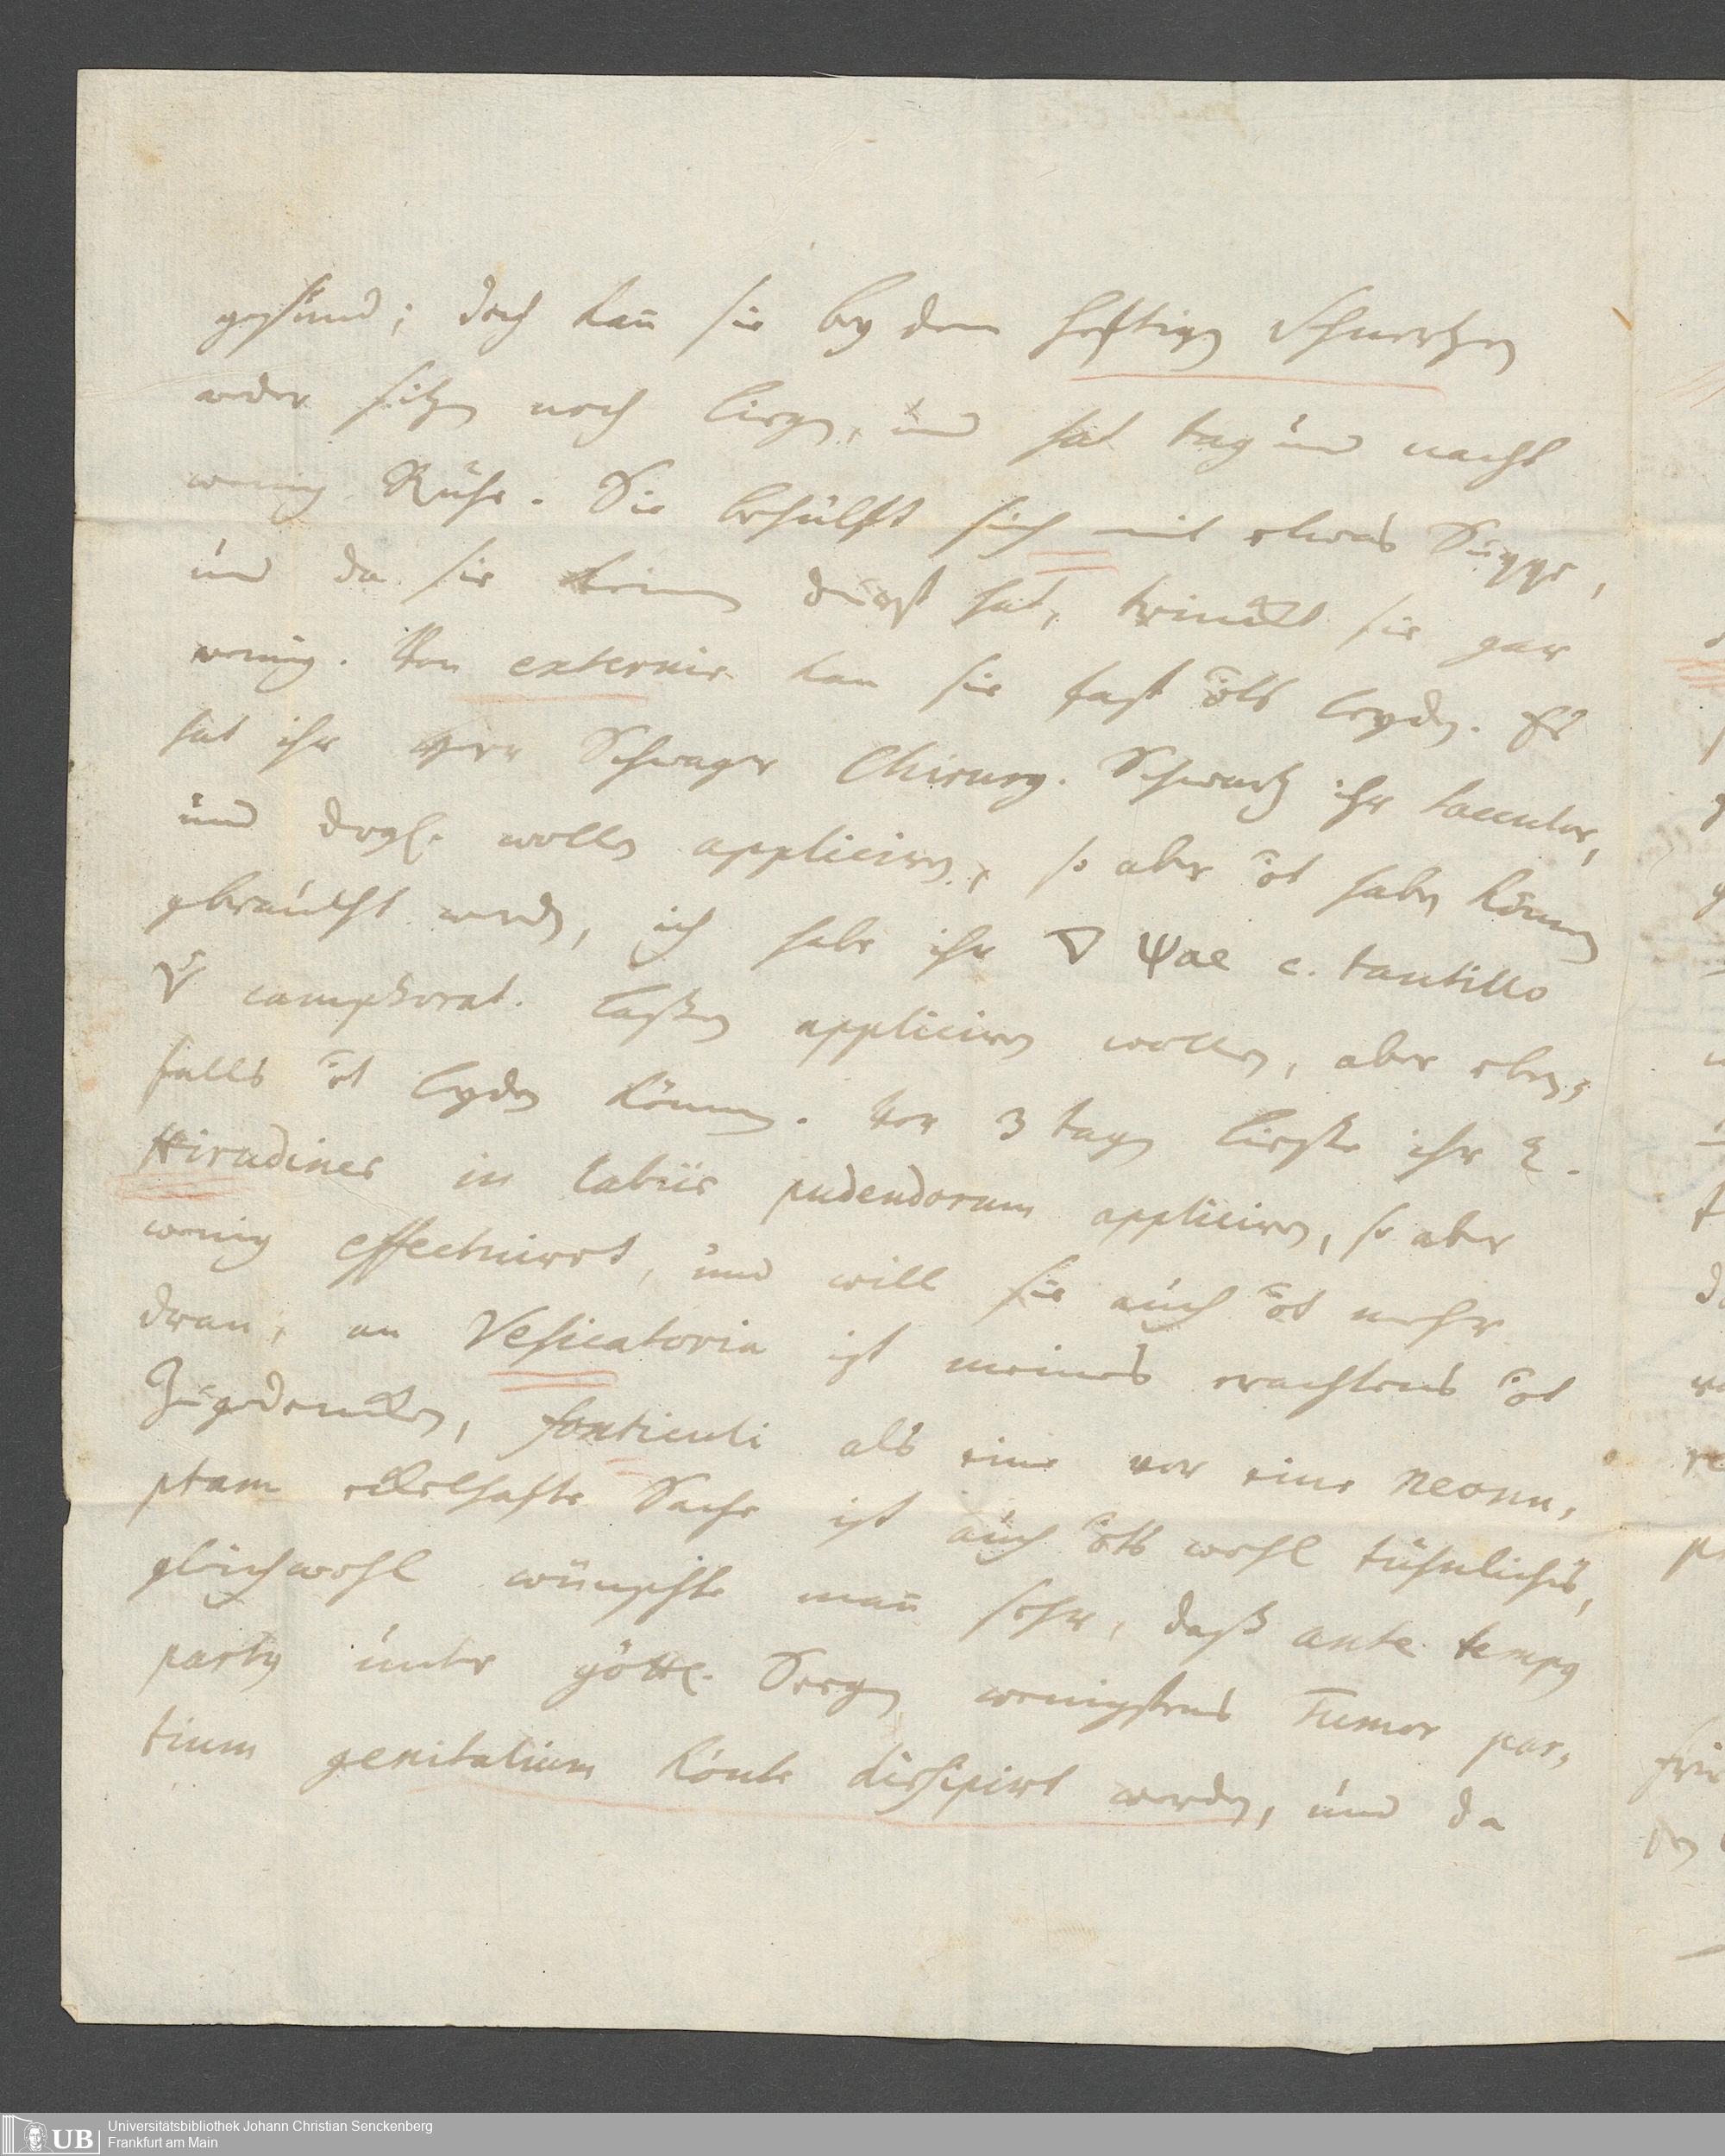 gesund; doch kan̄ sie bey dem hefftigen Schmertzen
weder sitzen noch liegen, und hat tag und nacht
wenig Ruhe. Sie behülfft sich mit etwas Suppe,
und da sie keinen durst hat, trinckt sie gar
wenig. Von externis kan sie fast leyden. Es
hat ihr Herr Schwager Chirurg. Schwartz ihr
und dergl. wollen appliciren, so aber haben können
gebraucht werden, ich habe ihr ▽ Ψae c. tantillo
camphorat. lassen appliciren wollen, aber eben,
falls leyden können. Vor 3 tagen liesse ihr 2.
Hirudines in labiis pudendorum appliciren, so aber
wenig effectuiret, und will sie auch mehr
dran, an Vesicatoria ist meines erachtens
Zugedencken, fonticuli als eine vor eine neonu,
ptam eckelhafte Sache ist auch wohl tuhnliches,
gleichwohl wünschte man̄ sehr, daß ante temp9
part9 unter göttl. Seegen wenigstens Tumor par,
tium genitalium könte dissipirt werden, und da
Universitätsbibliothek Johann Christian Senckenberg
Frankfurt am Main
UB